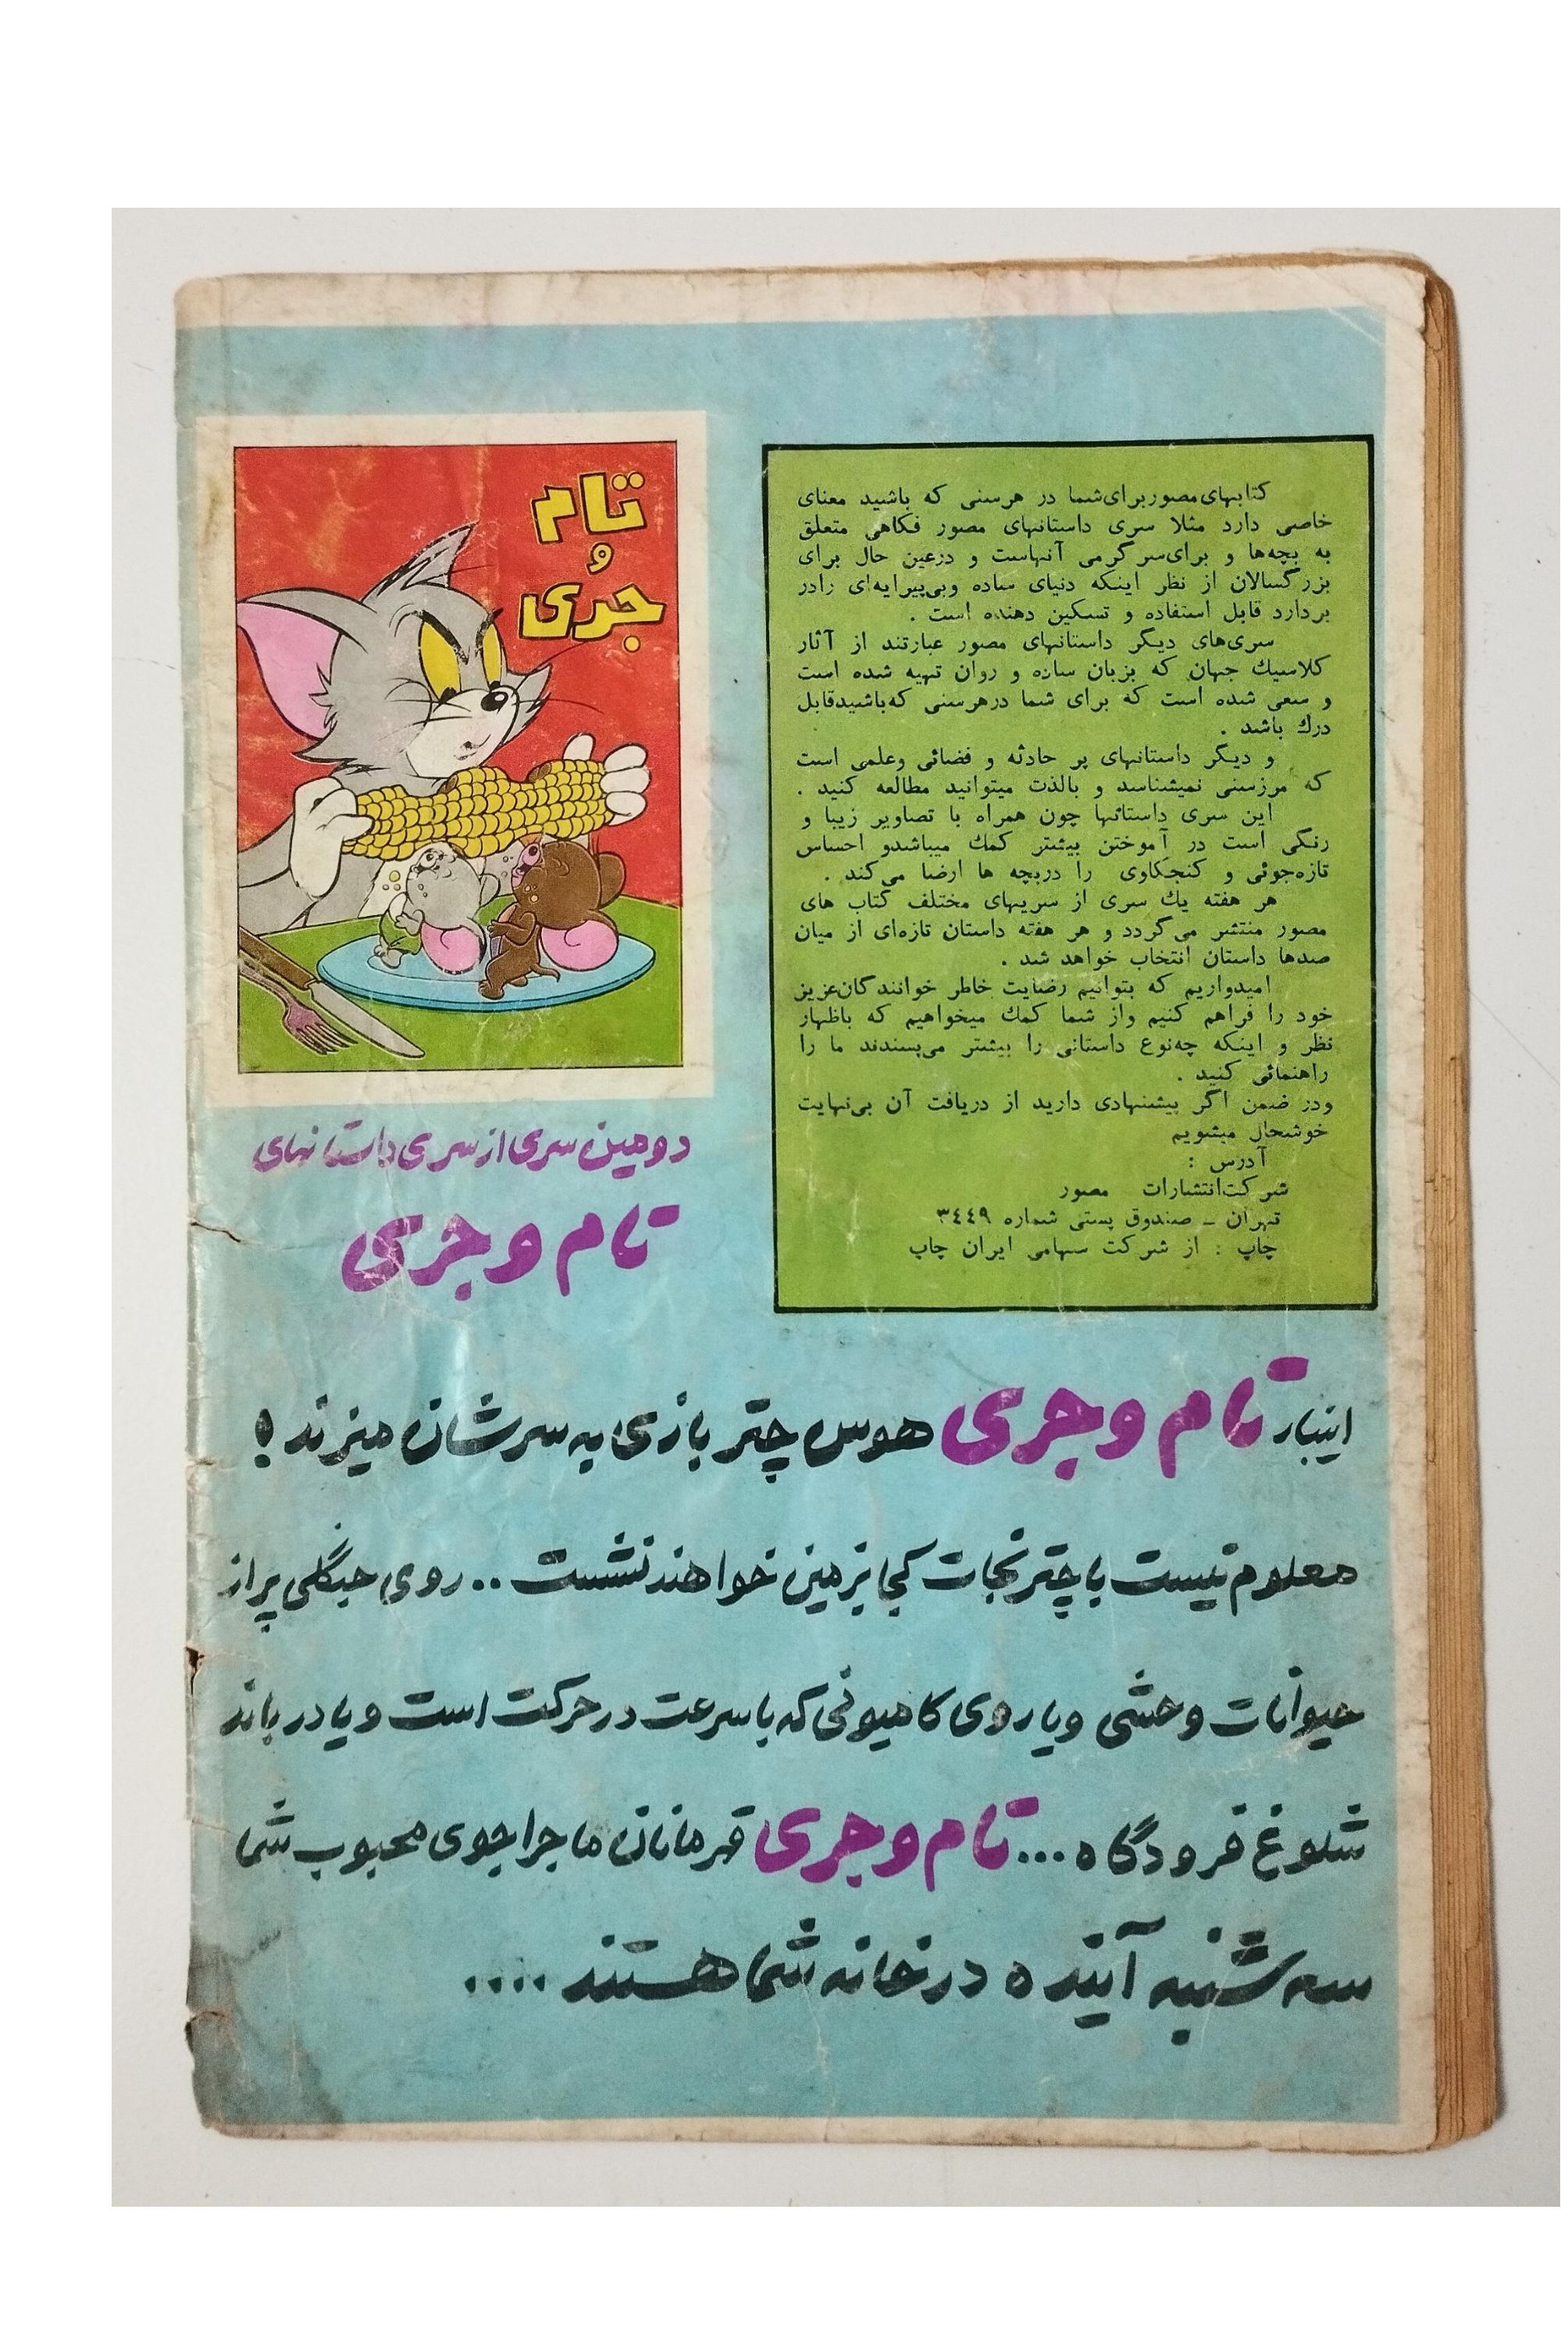 کتابهای مصور برای شما در هر سنی که باشید معنای
خاصی دارد مثلا سری داستانهای مصور فکاهی متعلق
به بچه‌ها و برای سرگرمی آنهاست و درعین حال برای
بزرگسالان از نظر اینکه دنیای ساده و بی‌پیرایه‌ای رادر
بردارد قابل استفاده و تسکین دهنده است .
سری‌های دیگر داستانهای مصور عبارتند از آثار
کلاسیك جهان که بزبان ساده و روان تهیه شده است
و سعی شده است که برای شما درهرسنی که باشید قابل
درك باشد .
و دیگر داستانهای پر حادثه و فضائی وعلمی است
که مرزسنی نمیشناسد و بالذت میتوانید مطالعه کنید .
این سری داستانها چون همراه با تصاویر زیبا و
رنگی است در آموختن بیشتر کمك میباشدو احساس
تازه‌جوئی و کنجکاوی را دربچه ها ارضا می‌کند .
هر هفته یك سری از سریهای مختلف کتاب های
مصور منتشر می‌گردد و هر هفته داستان تازه‌ای از میان
صدها داستان انتخاب خواهد شد .
امیدواریم که بتوانیم رضایت خاطر خوانندگان عزیز
خود را فراهم کنیم واز شما کمك میخواهیم که باظهار
نظر و اینکه چه‌نوع داستانی را بیشتر می‌پسندند ما را
راهنمائی کنید .
ودر ضمن اگر پیشنهادی دارید از دریافت آن بی‌نهایت
خوشحال میشویم
آدرس :
شرکت‌انتشارات مصور
تهران ـ صندوق پستی شماره ۳۴۴۹
چاپ : از شرکت سهامی ایران چاپ
تام
و
جری
دومین سری از سری داستانهای
تام و جری
اینبار تام و جری هوس چتر بازی به سرشان میزند !
معلوم نیست با چتر نجات کجا بزمین خواهند نشست .. روی جنگلی پر از
حیوانات وحشی و یا روی کامیونی که با سرعت در حرکت است و یا در باند
شلوغ فرودگاه ... تام و جری قهرمانان ماجراجوی محبوب شما
سه شنبه آینده در خانه شما هستند ....